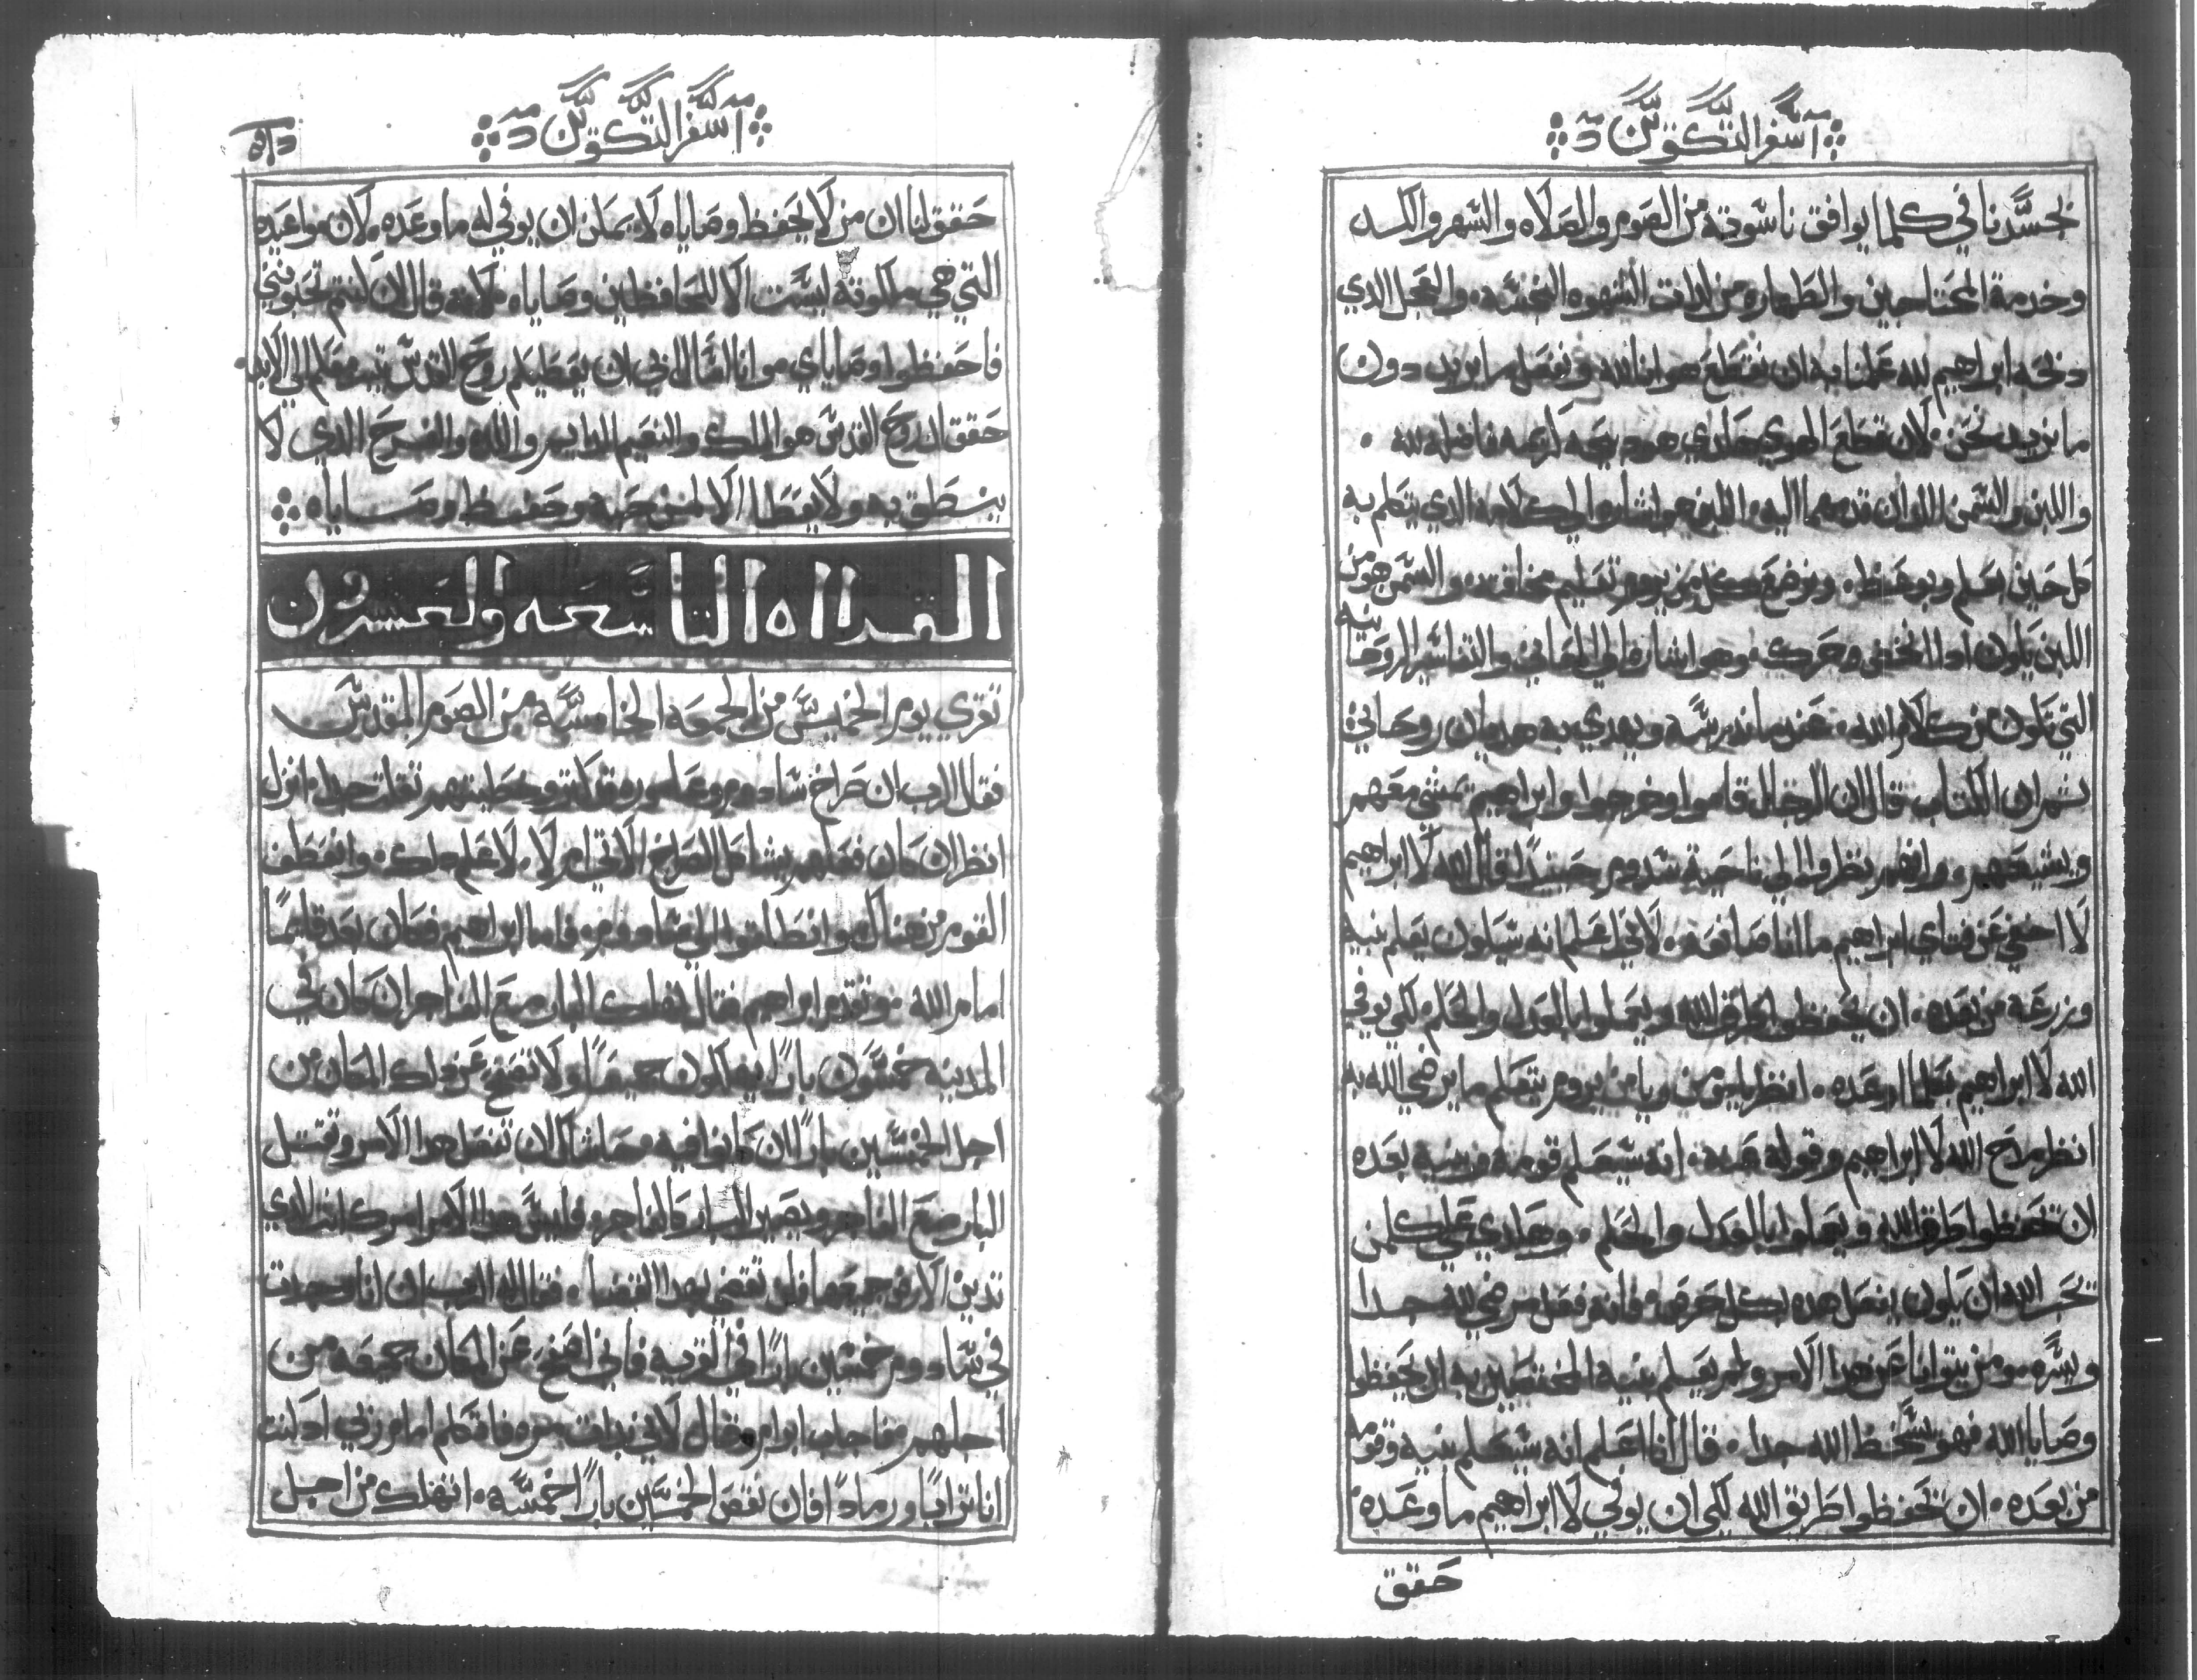 سفر التكوين
لجسدنا في كلما يوافق ناسوته من الصوم والصلاه والسهر والكد
وخدمة المحتاجين والطهاره من لدات الشهوه النجسه والعجل الدي
دبحه ابراهيم لله علمنا به ان نقطع هوانا لله ونفعل ما يريد دون
ما نريد نحن لان قطع الهوي هادي هو دبيحه كريمه فاضله لله
واللبن والسمن اللدان قدمهما اليه اللبن هو اشاره الي كلامه الدي يتكلم به
كل حين يعلم ويوعظ ويرضع كل من يروم تعليم مخافته والسمن هو من
اللبن يكون ادا انخض وحرك وهو اشاره الي المعاني والتفاسير الروحانيه
التي تكون من كلام الله عندما ندرسه ويهدي به هديان روحاني
ثم ان الكتاب قال ان الرجال قاموا وخرجوا وابراهيم يمشي معهم
ويشيعهم وانهم نظروا الي ناحية سدوم حينيدا قال الله لا ابراهيم
لا اخفي عن فتاي ابراهيم ما انا صانعه لاني اعلم انه سيكون يعلم بنيه
وزرعه من بعده ان يحفظوا طرق الله ويعملوا بالعدل والحكم لكي يوفي
الله لا ابراهيم بكلما اوعده انظر يامن ويامن يروم يتعلم ما يرضي الله به
انظر مدح الله لا ابراهيم وقوله عنه انه سيعلم قومه وبنيه بعده
ان تحفظوا طرق الله ويعملوا بالعدل والحكم وهادي علي كلمن
تحب الله ان يكون يفعل هده بكل حرص فانه فعل مرضي لله جدا
ويسره ومن يتوانا عن هدا الامر ولم يعلم بنيه المختصين به ان يحفظوا
وصايا الله فهو يسخط الله جدا قال انا اعلم انه سيعلم بنيه وقومه
من بعده ان تحفظوا طريق الله لكي ان يوفي لا ابراهيم ما وعده
حقق
سفر التكوين
حقق لنا ان من لا يحفظ وصاياه لا يمكن ان يوفي له ما وعده لان مواعيده
التي هي ملكوته ليست الا للمحافظين وصاياه لانه قال ان كنتم تحبونني
فاحفظوا وصاياي وانا اسال ابي ان يعطيكم روح القدس يثبت معكم الي الابد
حقق ان روح القدس هو الملك والنعيم الدايم واللده والفرح الدي لا
ينطق به ولا يعطا الا لمن حبه وحفظ وصاياه
القراه التاسعه والعشرون
تقري يوم الخميس من الجمعه الخامسه من الصوم المقدس
فقال الرب ان صراخ سادوم وعاموره قد كتر وخطيتهم تقلت جدا انزل
انظر ان كان فعلهم يشاكل الصراخ الاتي ام لا لاعلم دلك وانعطف
القوم من هناك وانطلقوا الي سادوم فاما ابراهيم فكان بعد قايما
امام الله وتقدم ابراهيم فقال تهلك البار مع الفاجر ان كان في
المدينه خمسون بارا يهلكون جميعا ولا تصفح عن دلك المكان من
اجل الخمسين بارا ان كانوا فيه حاشاك ان تفعل هدا الامر وتقتل
البار مع الفاجر ويصير البار كالفاجر فليس هدا الامر امرك انت الدي
تدين الارض جميعها فلن تقضي بهدا القضا فقال له الرب ان انا وجدت
في سادوم خمسين بارا في القريه فاني اصفح عن المكان جميعه من
اجلهم فاجاب ابرام وقال لاني بدات مره فاتكلم امام ربي اد كنت
انا ترابا ورمادا فان نقص الخمسين بارا خمسه اتهلك من اجل